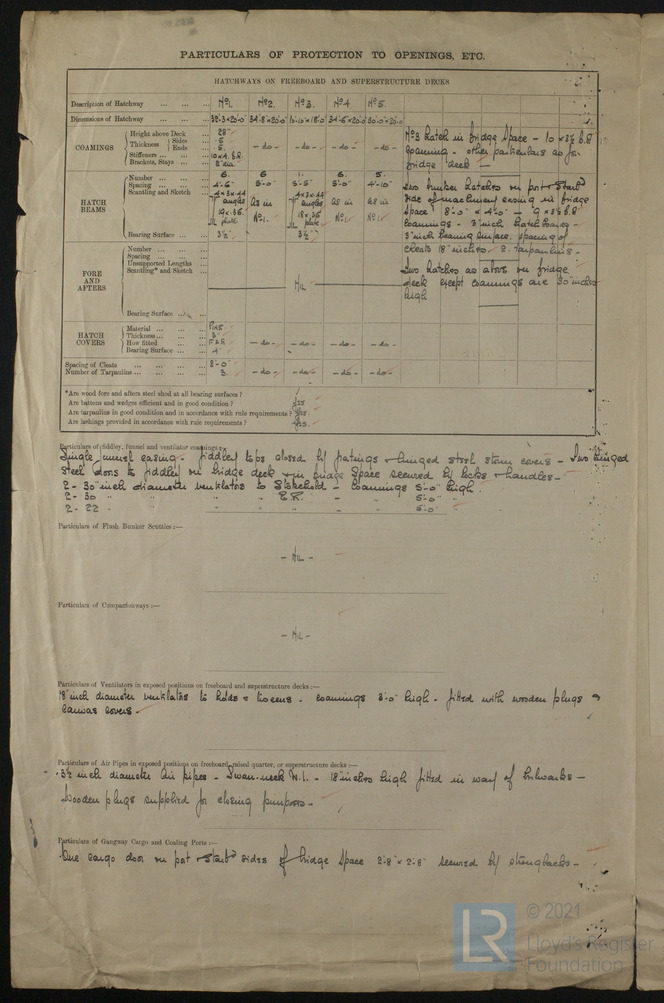 PARTICULARS OF PROTECTION TO OPENINGS, ETC.
HATCHWAYS ON FREEBOARD AND SUPERSTRUCTURE DECKS
Description of Hatchway ... ... ... No1. No2. No3. No4 No5.
Dimensions of Hatchway ... ... ... 32'-3×20'0" 34'-8×20'0 34'-6×20'0 30'-0×20'0
COAMINGS
Height above Deck ... 28"
Thickness Sides ... .5
Ends ... .5
Stiffeners ... ... ...
Brackets, Stays ... ...
- do - - do - - do - - do -
No3 hatch in bridge space - 10 × 3½ B.A
coaming - other particulars as for
bridge deck -
HATCH BEAMS
Number ... ... ... 6. 6 1. 6. 5.
Spacing ... ... ... 4'-6" 5'-0" 5'-5" 5'-0" 4'-10"
Scantling and Sketch ... 4×3×.44 angles 4×3×.44 angles
19×.36 plate 18×.36 plate
as in No1. as in No1. as in No1.
Bearing Surface ... ... 3½" 3½"
Two bunker hatches on port & starbd
side of machinery casing in bridge
space 8'-0" × 4'-0" - 9 × 3½ B.A
coamings - 3 inch hatch covers -
3 inch bearing surface, spacing of
cleats 18 inches. 2. tarpaulins -
FORE AND AFTERS
Number ... ... ...
Spacing ... ... ...
Unsupported Lengths ...
Scantling* and Sketch ...
Bearing Surface ... ...
Nil
Two hatches as above on bridge
deck except coamings are 30 inches
high
HATCH COVERS
Material ... ... ... Pine
Thickness ... ... ... 3"
How fitted ... ... F & A
Bearing Surface ... ... 4"
- do - - do - - do - - do -
Spacing of Cleats ... ... ... ... 2'-0"
Number of Tarpaulins ... ... ... ... 3. - do - - do - - do - - do -
*Are wood fore and afters steel shod at all bearing surfaces?
Are battens and wedges efficient and in good condition? yes
Are tarpaulins in good condition and in accordance with rule requirements? yes
Are lashings provided in accordance with rule requirements? yes
Particulars of fiddley, funnel and ventilator coamings:—
Single funnel casing - fiddley tops closed by gratings & hinged steel storm covers - Two hinged
steel doors to fiddley on bridge deck & in bridge space secured by locks & handles -
2 - 30 inch diameter ventilators to Stokehold - coamings 5'-0" high.
2 - 30 " " " " E.R. - - 5'-0" -
2 - 22 " " " " - - 5'-0" -
Particulars of Flush Bunker Scuttles:—
- Nil -
Particulars of Companionways:—
- Nil -
Particulars of Ventilators in exposed positions on freeboard and superstructure decks:—
18 inch diameter ventilators to holds & tweens - coamings 3'-0" high - fitted with wooden plugs &
canvas covers -
Particulars of Air Pipes in exposed positions on freeboard, raised quarter, or superstructure decks:—
3½ inch diameter air pipes - Swan-neck W.I. - 18 inches high fitted in way of bulwarks -
Wooden plugs supplied for closing purposes -
Particulars of Gangway Cargo and Coaling Ports:—
One cargo door on port & starbd sides of bridge space 2'-8" × 2'-8" secured by strongbacks -
LR
© 2021
Lloyd's Register
Foundation